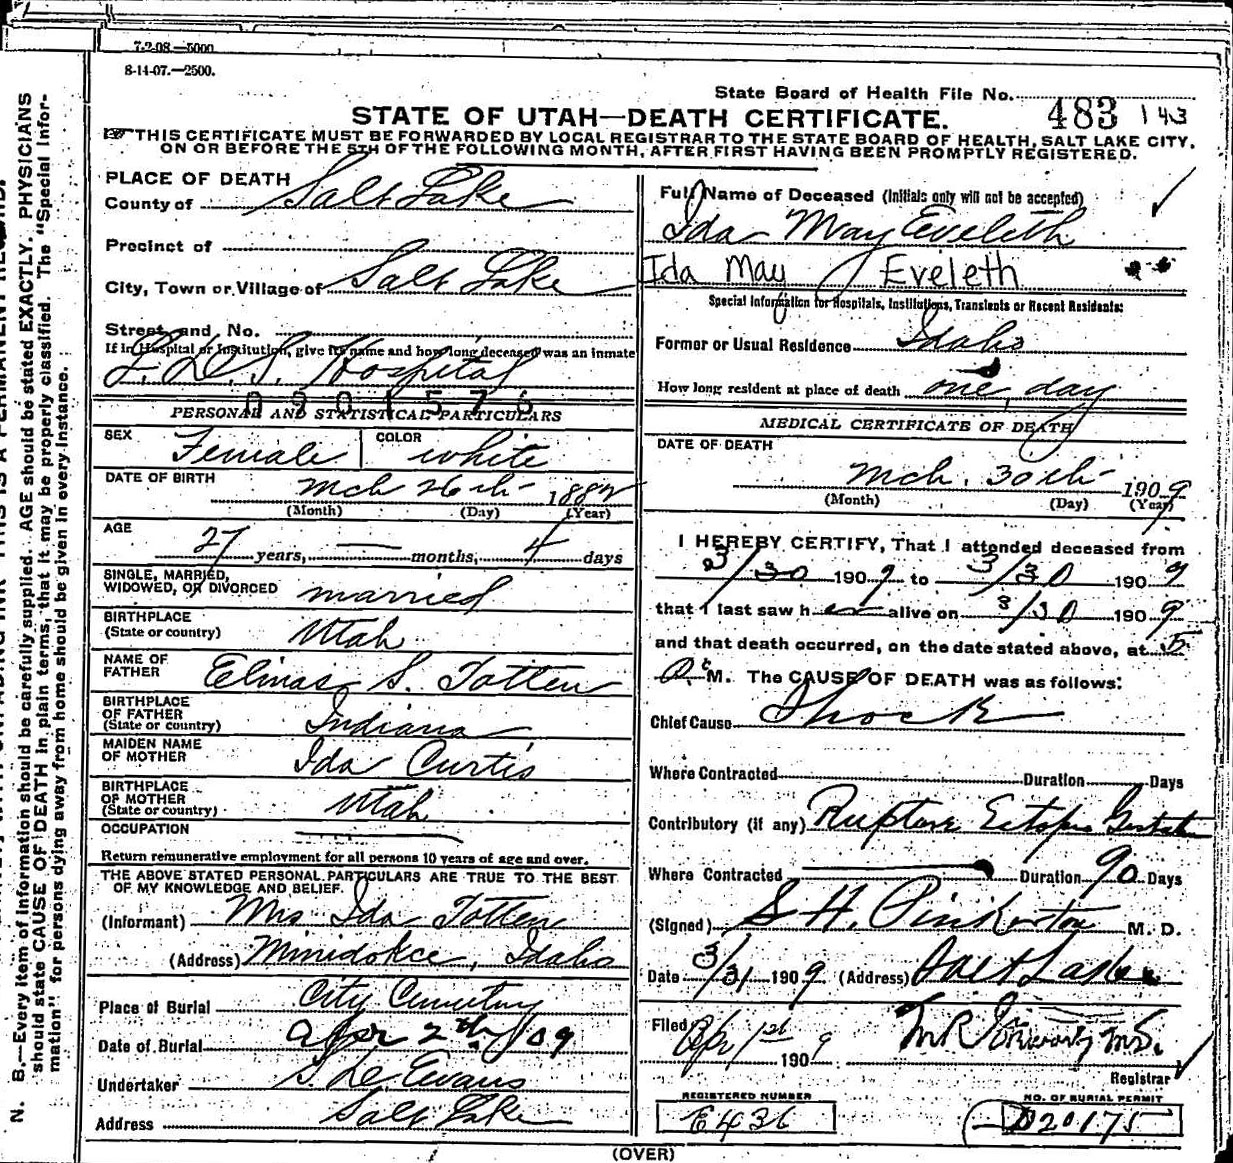 7-2-08.—5000
8-14-07.—2500.
State Board of Health File No. 483 143
STATE OF UTAH—DEATH CERTIFICATE.
THIS CERTIFICATE MUST BE FORWARDED BY LOCAL REGISTRAR TO THE STATE BOARD OF HEALTH, SALT LAKE CITY,
ON OR BEFORE THE 5TH OF THE FOLLOWING MONTH, AFTER FIRST HAVING BEEN PROMPTLY REGISTERED.
PLACE OF DEATH
County of Salt Lake
Precinct of
City, Town or Village of Salt Lake
Street and No.
If in Hospital or Institution, give its name and how long deceased was an inmate
L. D. S. Hospital
0901576
PERSONAL AND STATISTICAL PARTICULARS
SEX Female COLOR white
DATE OF BIRTH Mch 26th 1882
(Month) (Day) (Year)
AGE 27 years, — months, 4 days
SINGLE, MARRIED,
WIDOWED, OR DIVORCED married
BIRTHPLACE
(State or country) Utah
NAME OF
FATHER Elmas S. Totten
BIRTHPLACE
OF FATHER
(State or country) Indiana
MAIDEN NAME
OF MOTHER Ida Curtis
BIRTHPLACE
OF MOTHER
(State or country) Utah
OCCUPATION
Return remunerative employment for all persons 10 years of age and over.
THE ABOVE STATED PERSONAL PARTICULARS ARE TRUE TO THE BEST
OF MY KNOWLEDGE AND BELIEF.
(Informant) Mrs Ida Totten
(Address) Minidokce, Idaho
Place of Burial City Cemetery
Date of Burial Apr 2nd /09
Undertaker S. D. Evans
Address Salt Lake
Full Name of Deceased (Initials only will not be accepted)
Ida May Eveleth
Ida May Eveleth
Special Information for Hospitals, Institutions, Transients or Recent Residents:
Former or Usual Residence Idaho
How long resident at place of death one day
MEDICAL CERTIFICATE OF DEATH
DATE OF DEATH
Mch. 30th 1909
(Month) (Day) (Year)
I HEREBY CERTIFY, That I attended deceased from
3/30 1909 to 3/30 1909
that I last saw her alive on 3/30 1909
and that death occurred, on the date stated above, at 5
A. M. The CAUSE OF DEATH was as follows:
Chief Cause Shock
Where Contracted Duration Days
Contributory (if any) Rupture Ectopic Gestation
Where Contracted Duration 90 Days
(Signed) S H. Pinkerton M. D.
Date 3/31 1909 (Address) Salt Lake
Filed Apr 1st 1909
Registrar
REGISTERED NUMBER
E436
NO. OF BURIAL PERMIT
D20175
(OVER)
N. B.—Every item of information should be carefully supplied. AGE should be stated EXACTLY. PHYSICIANS
should state CAUSE OF DEATH in plain terms, that it may be properly classified. The "Special Infor-
mation" for persons dying away from home should be given in every instance.